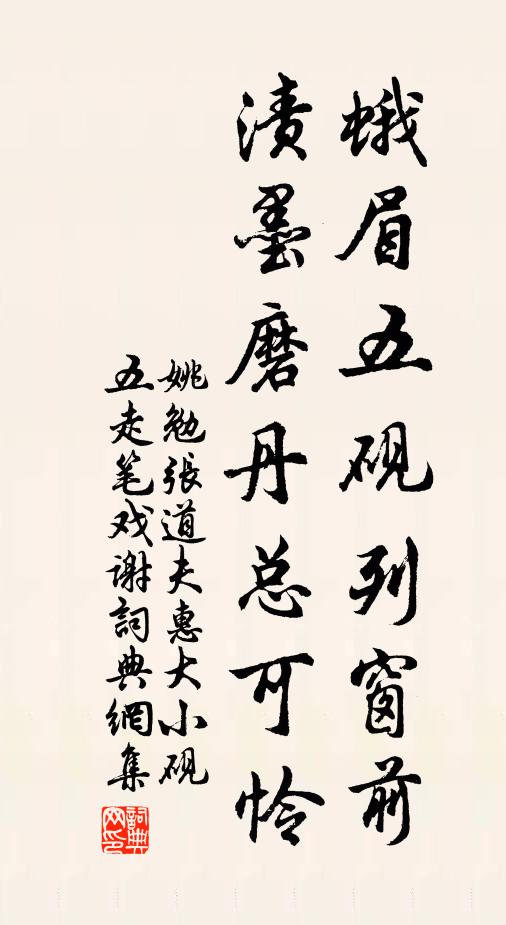 蛾眉五砚列窗前
渍墨磨丹总可怜
姚勉張道夫惠大小砚
五走笔戏谢詞典網集
詞典網印